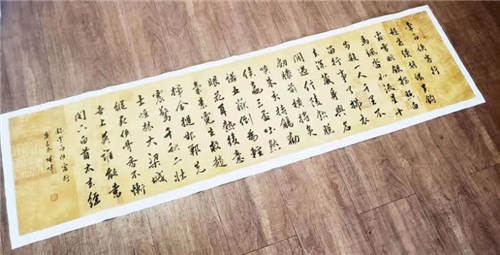 李白俠客行
趙客縵胡纓吴鈎
霜雪明銀鞍照白
馬颯沓如流星十
步殺一人千里不
留行事了拂衣
去深藏身與名
閑過信陵飲脱
劍膝前横將炙
啖朱亥持觴勸
侯嬴三杯吐然
諾五嶽倒為輕
眼花耳熱後意
氣素霓生救趙
揮金槌邯鄲先
震驚千秋二壯
士烜赫大梁城
縱死俠骨香不慚
世上英誰能書
閣下白首太玄經
李白俠客行